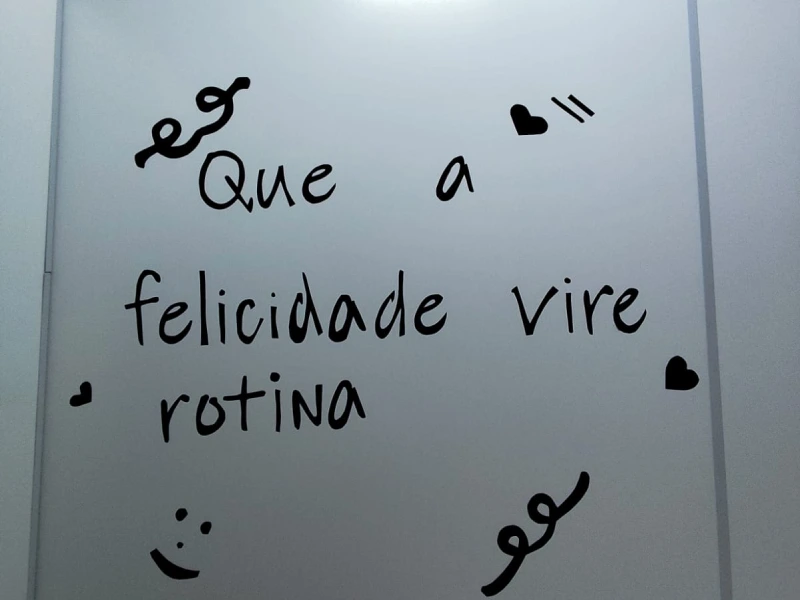 Que a
felicidade vire
rotina